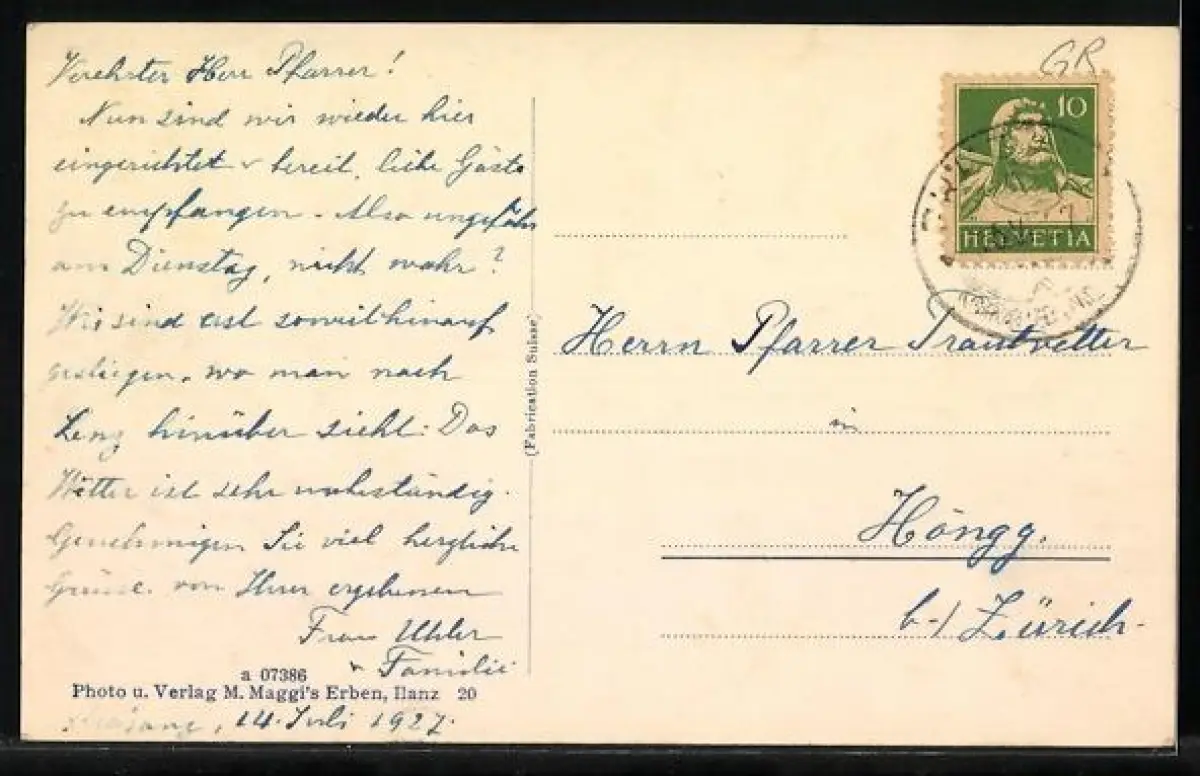 Verehrter Herr Pfarrer!
Nun sind wir wieder hier
eingerichtet & bereit, liebe Gäste
zu empfangen. Also ungefähr
am Dienstag, nicht wahr?
Wir sind erst soweit hinauf
gestiegen, wo man nach
Lenz hinüber sieht. Das
Wetter ist sehr unbeständig.
Genehmigen Sie viel herzliche
Grüsse von Ihrer ergebenen
Frau Uhler
& Familie
a 07386
Photo u. Verlag M. Maggi's Erben, Ilanz 20
14. Juli 1927.
(Fabrication Suisse)
GR
10
HELVETIA
Herrn Pfarrer Trautvetter
in
Höngg.
b/ Zürich.